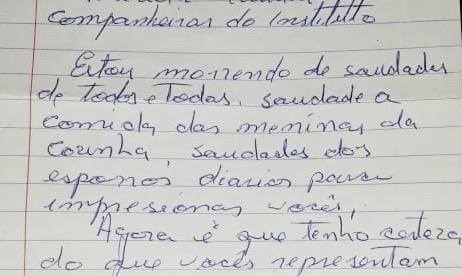 Companheiras do Instituto
Estou morrendo de saudades
de todos e Todas, saudade a
comida das meninas da
cozinha, saudades dos
diarios para
impressionar vocês,
Agora é que tenho certeza
do que vocês representam